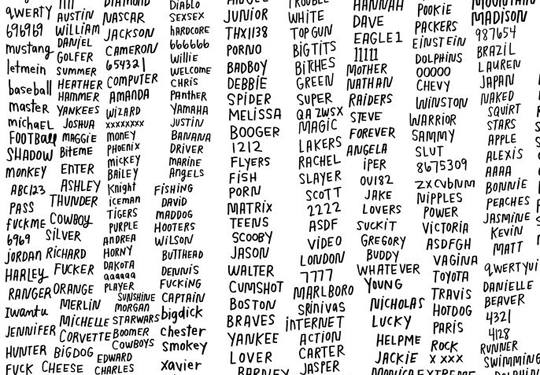 qwerty
696969
mustang
letmein
baseball
master
michael
FOOTBALL
SHADOW
monkey
ABC123
PASS
fuckme
6969
jordan
HARLEY
RANGER
Iwantu
JENNIFER
HUNTER
FUCK
AUSTIN
WILLIAM
DANIEL
GOLFER
SUMMER
HEATHER
HAMMER
YANKEES
JOSHUA
MAGGIE
Biteme
ENTER
ASHLEY
THUNDER
COWBOY
SILVER
RICHARD
FUCKER
ORANGE
MERLIN
MICHELLE
CORVETTE
BIGDOG
CHEESE
NASCAR
JACKSON
CAMERON
654321
COMPUTER
AMANDA
WIZARD
xxxxxxxx
MONEY
PHOENIX
MICKEY
BAILEY
Knight
iceman
TIGERS
PURPLE
ANDREA
HORNY
DAKOTA
aaaaaa
PLAYER
SUNSHINE
MORGAN
STARWARS
BOOMER
COWBOYS
EDWARD
CHARLES
Diablo
SEXSEX
hardcore
666666
Willie
WELCOME
CHRIS
Panther
YAMAHA
JUSTIN
BANANA
DRIVER
MARINE
Angels
FISHING
DAVID
MADDOG
HOOTERS
WILSON
BUTTHEAD
DENNIS
FUCKING
CAPTAIN
bigdick
chester
smokey
xavier
JUNIOR
THX1138
PORNO
BADBOY
DEBBIE
SPIDER
MELISSA
BOOGER
1212
FLYERS
FISH
PORN
MATRIX
TEENS
SCOOBY
JASON
WALTER
CUMSHOT
BOSTON
BRAVES
YANKEE
LOVER
BARNEY
WHITE
TOPGUN
BIGTITS
BITCHES
GREEN
SUPER
QAZWSX
MAGIC
LAKERS
RACHEL
SLAYER
SCOTT
2222
ASDF
VIDEO
LONDON
7777
MARLBORO
SRINIVAS
INTERNET
ACTION
CARTER
JASPER
HANNAH
DAVE
EAGLE1
11111
MOTHER
NATHAN
RAIDERS
STEVE
FOREVER
ANGELA
iPER
OU182
JAKE
LOVERS
SUCKIT
GREGORY
BUDDY
WHATEVER
YOUNG
NICHOLAS
LUCKY
HELPME
JACKIE
MONICA
POOKIE
PACKERS
EINSTEIN
DOLPHINS
00000
CHEVY
WINSTON
WARRIOR
SAMMY
SLUT
8675309
ZXCVBNM
NIPPLES
POWER
VICTORIA
ASDFGH
VAGINA
TOYOTA
TRAVIS
HOTDOG
PARIS
ROCK
XXXX
EXTREME
MADISON
987654
BRAZIL
LAUREN
JAPAN
NAKED
SQUIRT
STARS
APPLE
ALEXIS
AAAA
BONNIE
PEACHES
JASMINE
KEVIN
MATT
qwertyui
DANIELLE
BEAVER
4321
4128
RUNNER
SWIMMING